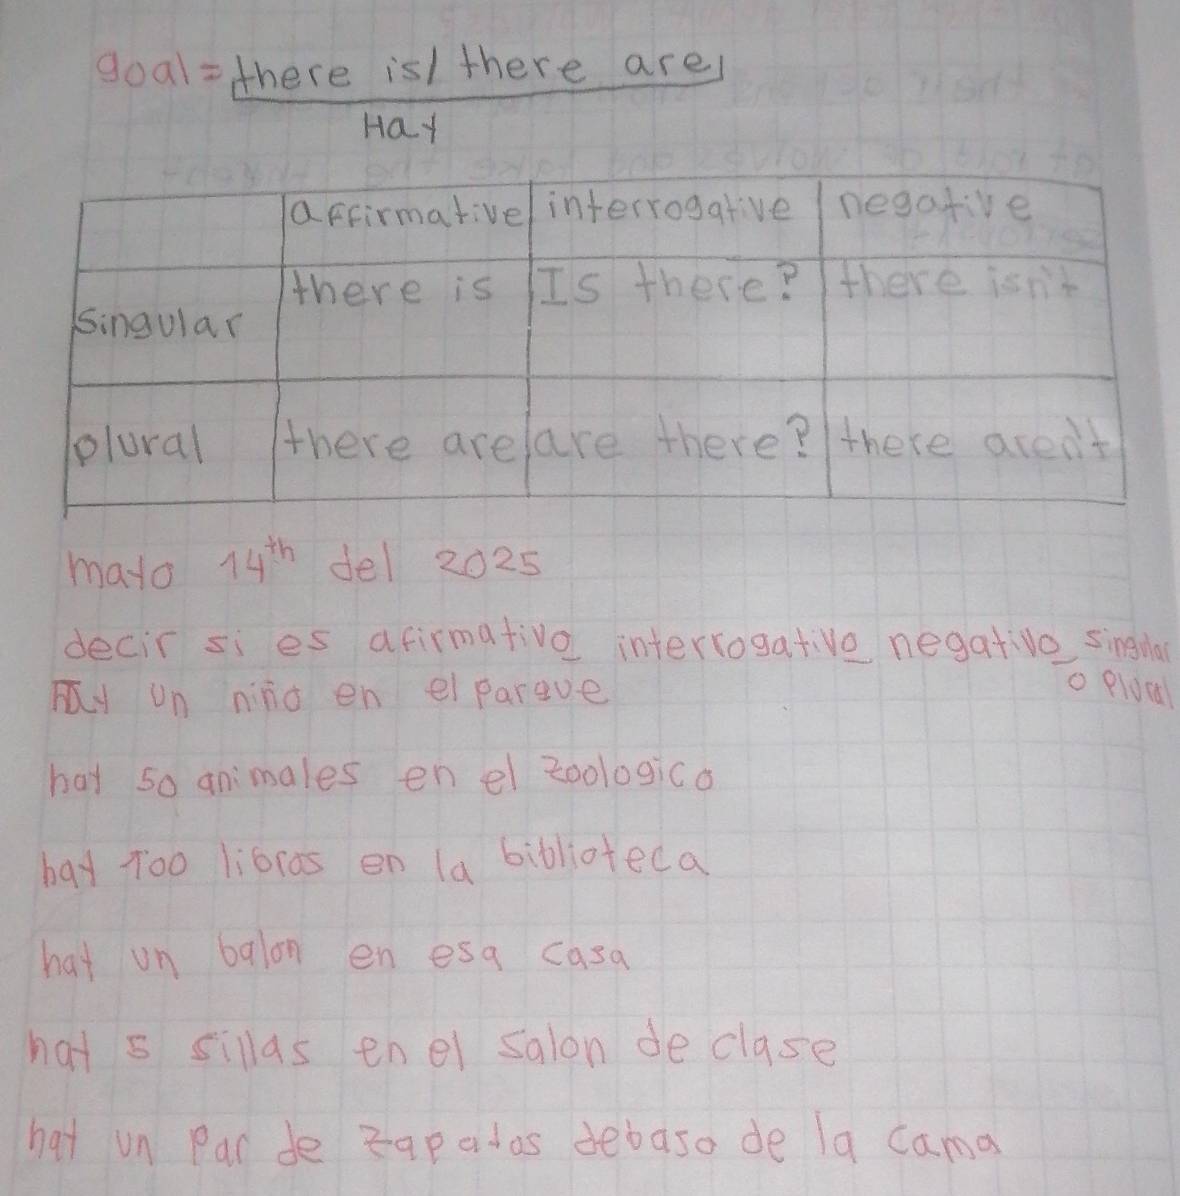 goal = there is/ there are
Hay
affirmative interrogative negative
singular there is Is there? there isn't
plural there are are there? there aren't
mayo 14th del 2025
decir si es afirmativo interrogativo negativo singular
o plural
Hay un niño en el parque
hay 50 animales en el zoologico
hay 100 libros en la biblioteca
hay un balon en esa casa
hay 5 sillas en el salon de clase
hay un par de zapatos debaso de la cama